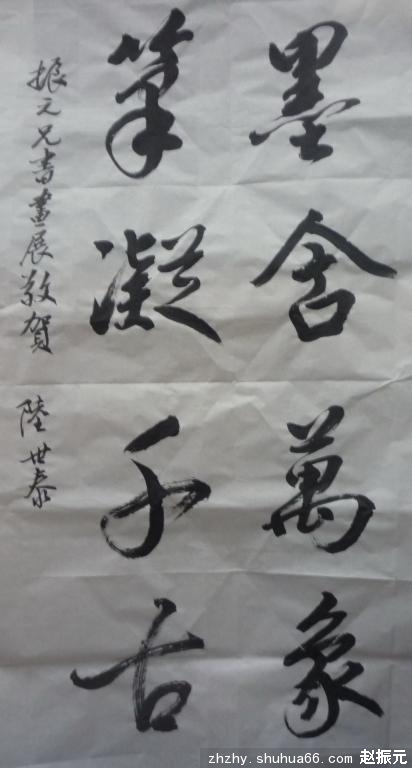 墨含萬象
筆凝千古
振元兄書畫展敬賀
陸世泰
zhzhy.shuhua66.com 赵振元